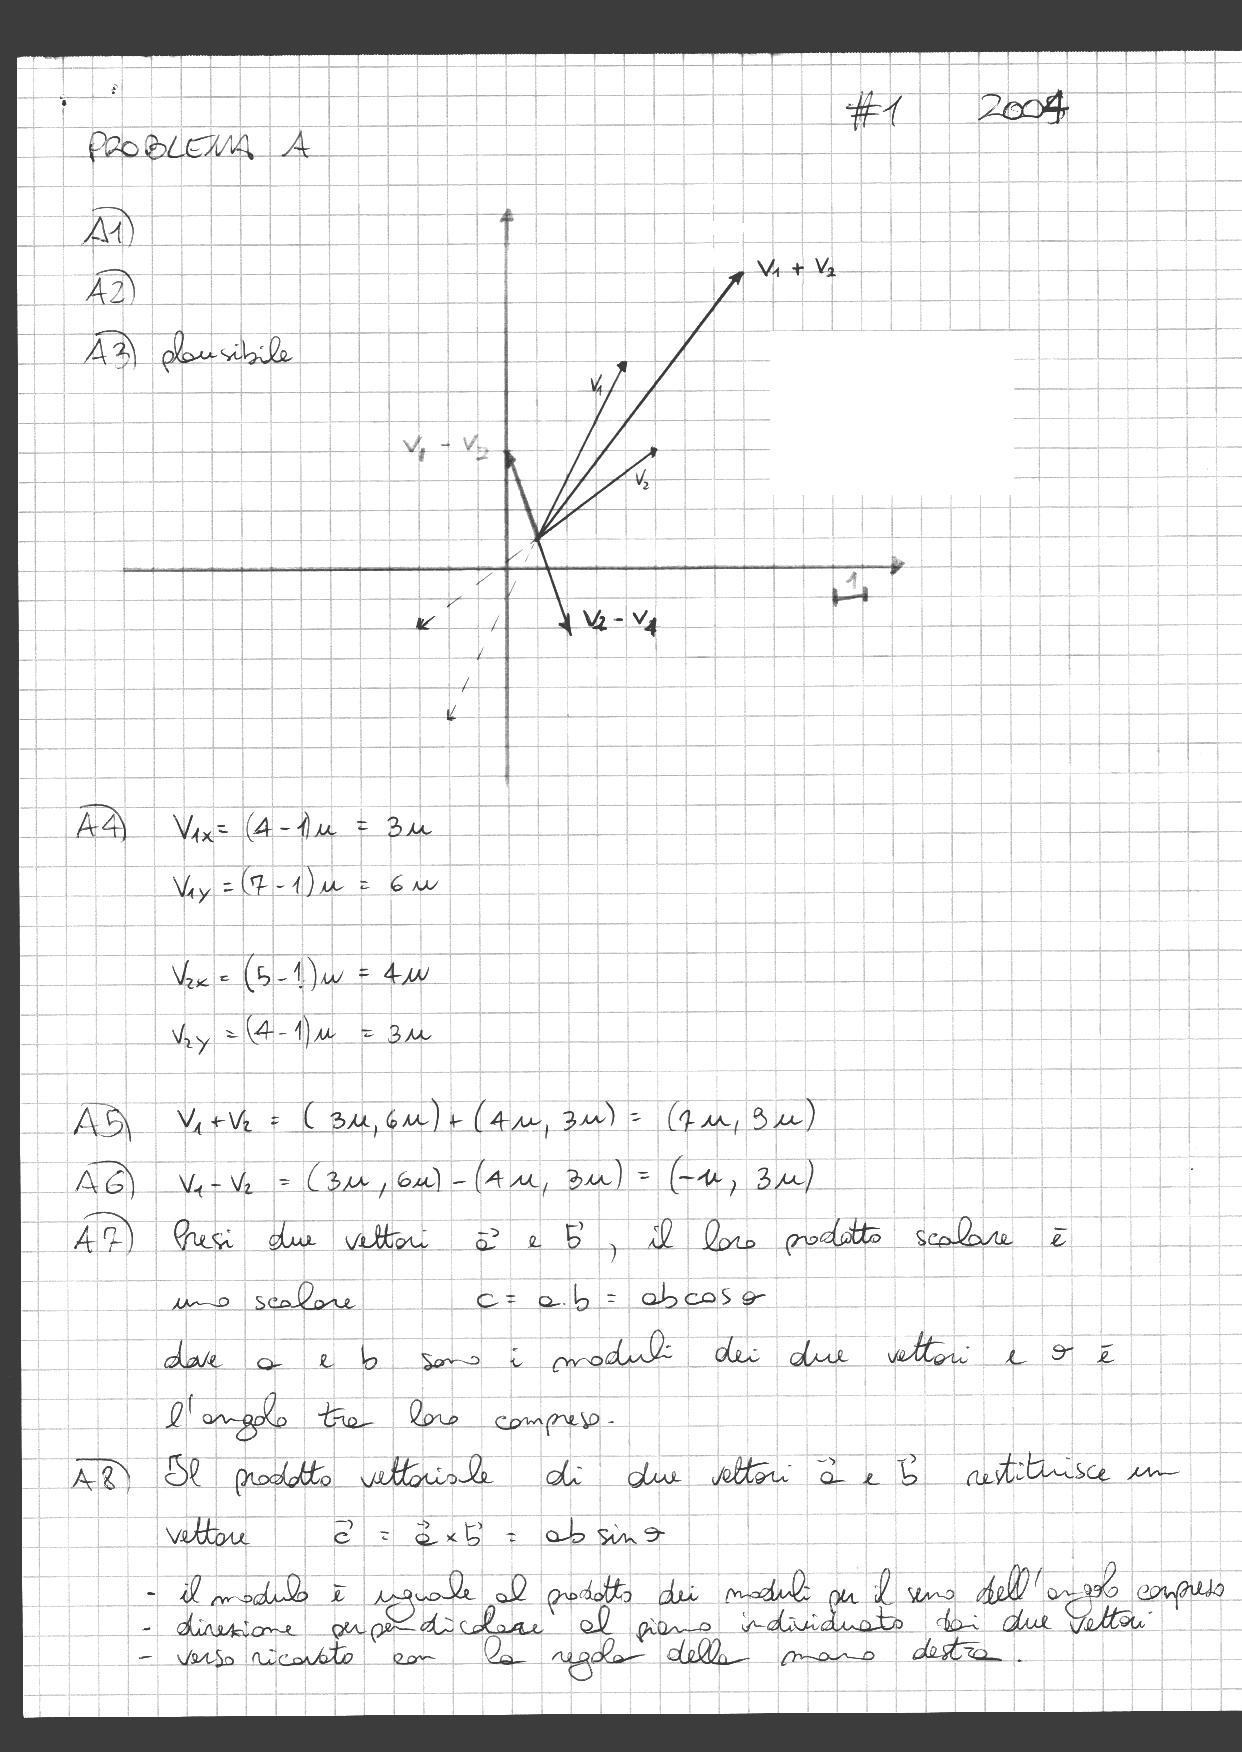 #1 2004
PROBLEMA A
A1)
A2)
A3) plausibile
V₁ + V₂
V₁
V₂
V₁ - V₂
1
V₂ - V₁
A4) V₁ₓ = (4-1)u = 3u
V₁y = (7-1)u = 6u
V₂ₓ = (5-1)u = 4u
V₂y = (4-1)u = 3u
A5) V₁+V₂ = (3u, 6u) + (4u, 3u) = (7u, 9u)
A6) V₁-V₂ = (3u, 6u) - (4u, 3u) = (-u, 3u)
A7) Presi due vettori a⃗ e b⃗, il loro prodotto scalare è
uno scalare c = a.b = ab cos θ
dove a e b sono i moduli dei due vettori e θ è
l'angolo tra loro compreso.
A8) Il prodotto vettoriale di due vettori a⃗ e b⃗ restituisce un
vettore c⃗ = a⃗ × b⃗ = ab sin θ
- il modulo è uguale al prodotto dei moduli per il seno dell'angolo compreso
- direzione perpendicolare al piano individuato dai due vettori
- verso ricavato con la regola della mano destra.